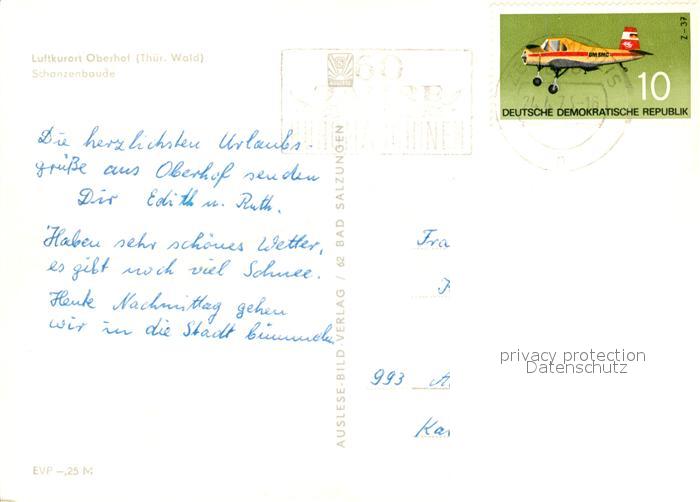 Luftkurort Oberhof (Thür. Wald)
Schanzenbaude
Die herzlichsten Urlaubs-
grüße aus Oberhof senden
Dir Edith u. Ruth.
Haben sehr schönes Wetter,
es gibt noch viel Schnee.
Heute Nachmittag gehen
wir in die Stadt bummeln
EVP -,25 M
AUSLESE-BILD-VERLAG / 62 BAD SALZUNGEN
60
Z-37
DM-SMC
10
DEUTSCHE DEMOKRATISCHE REPUBLIK
Fra
993 A
Kar
privacy protection
Datenschutz